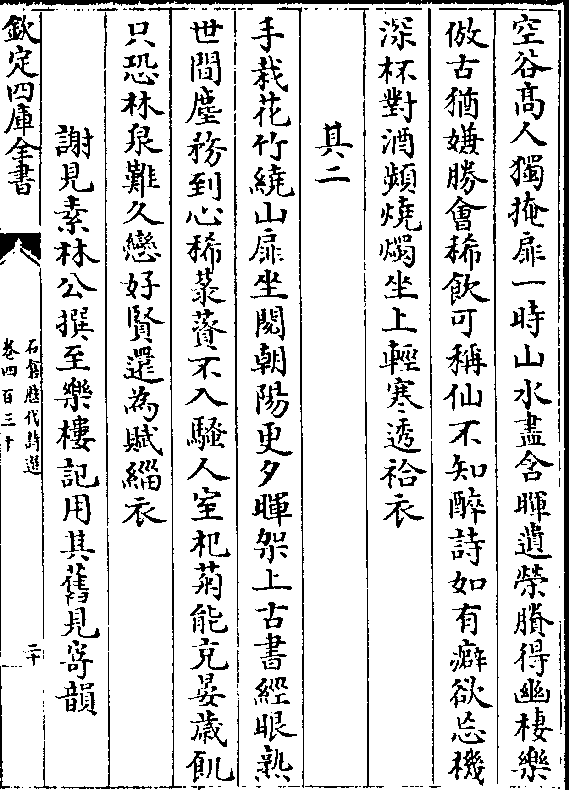 空谷髙人獨掩扉一時山水盡含暉遺榮賸得幽棲樂
倣古猶嫌勝會稀飲可稱仙不知醉詩如有癖欲忘機
深杯對酒頻燒燭坐上輕寒透袷衣
其二
手栽花竹繞山扉坐閱朝陽更夕暉架上古書經眼熟
世間塵務到心稀菉薋不入騷人室杞菊能充晏歲飢
只恐林泉難久戀好賢還為賦緇衣
謝見素林公撰至樂樓記用其舊見寄韻
欽定四庫全書
石倉歷代詩選
卷四百三十
二十